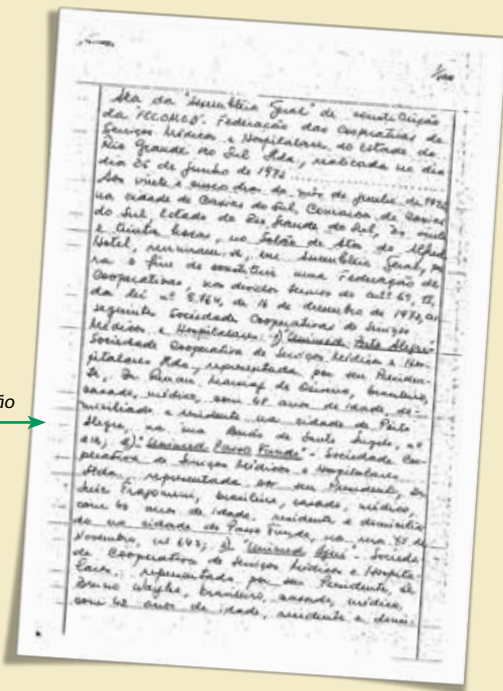 Ata da "Assembléia Geral" de constituição
da "FECOMED". Federação das Cooperativas de
Serviços Médicos e Hospitalares do Estado do
Rio Grande do Sul Ltda, realizada no dia
dia 25 de junho de 1972
Aos vinte e cinco dias do mês de junho de 1972
na cidade de Caxias do Sul, Comarca de Caxias
do Sul, Estado do Rio Grande do Sul, às vinte
e trinta horas, no Salão de Atos do Alfred
Hotel, reuniram-se, em Assembléia Geral, pa
ra o fim de constituir uma Federação de
Cooperativas, nos devidos termos do art.
da lei nº 5.764, de 16 de dezembro de 1971, as
seguintes Sociedades Cooperativas de Serviços
Médicos e Hospitalares: 1) "Unimed Porto Alegre"
Sociedade Cooperativa de Serviços Médicos e Hos-
pitalares Ltda, representada por seu Presiden-
te, Dr. de Oliveira, brasileiro,
casado, médico, com 61 anos de idade, do-
miciliado e residente na cidade de Porto
Alegre, na rua Barão de Santo Angelo, nº
2) "Unimed Passo Fundo" - Sociedade Coo-
perativa de Serviços Médicos e Hospitalares
Ltda, representada por seu Presidente, Dr
Luiz Fragomeni, brasileiro, casado, médico,
com anos de idade, residente e domicilia
do na cidade de Passo Fundo, na rua 15 de
Novembro, nº 643; 3) "Unimed Socieda
de Cooperativa de Serviços Médicos e Hospita-
lares, representada por seu Presidente, Sr
Bruno brasileiro, casado, médico,
com 42 anos de idade, residente e domi-
ão